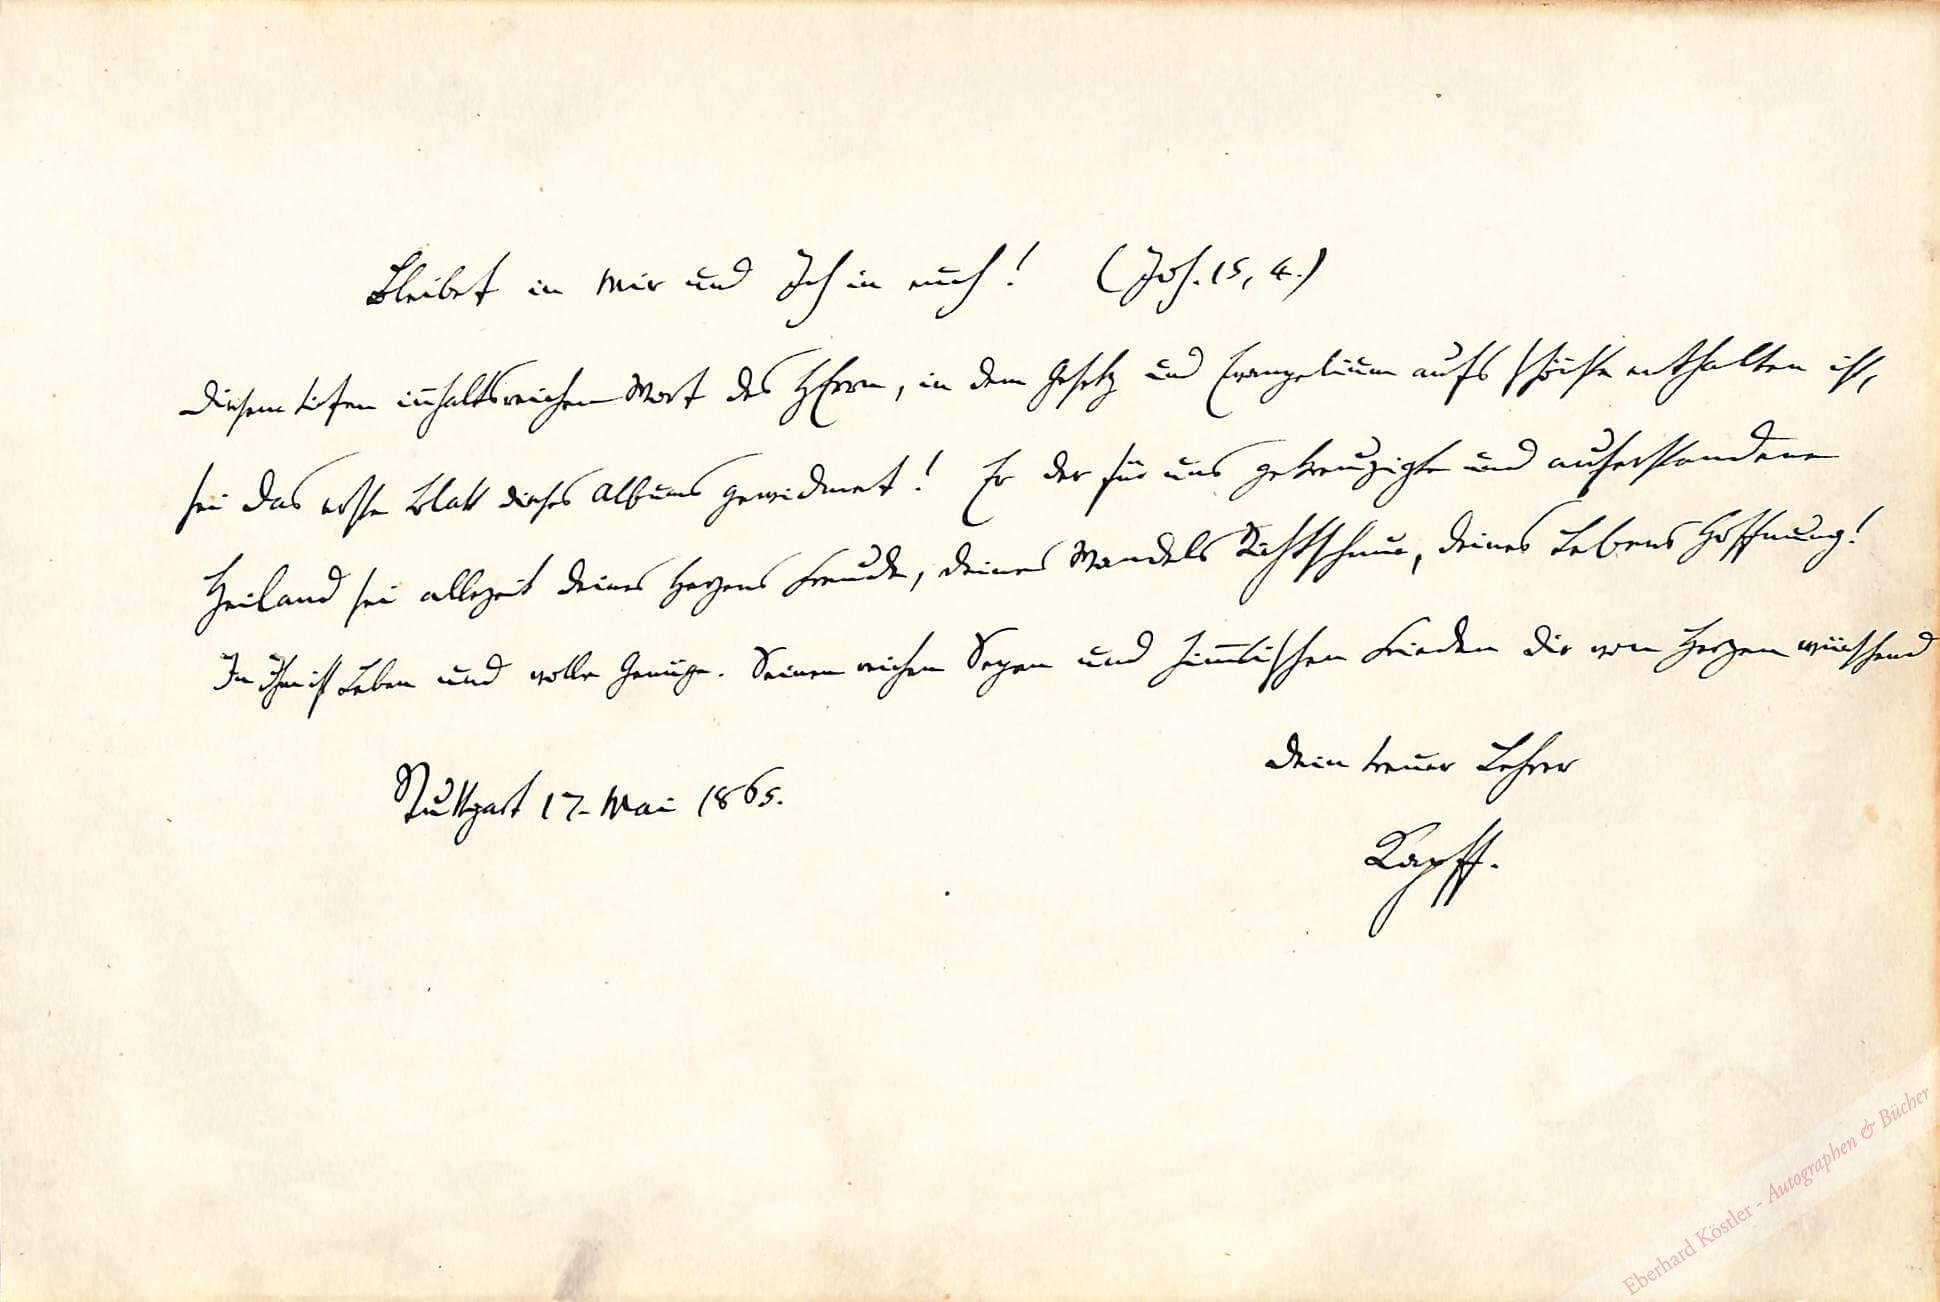 Bleibet in mir und Ich in euch! (Joh. 15, 4.)
Diesem tiefen inhaltsreichen Wort des HErrn, in dem Gesetz und Evangelium aufs schönste enthalten ist,
sei das erste Blatt dieses Albums gewidmet! Er der für uns gekreuzigte und auferstandene
Heiland sei allezeit deines Herzens Freude, deines Wandels Richtschnur, deines Lebens Hoffnung!
In Ihm ist Leben und volle Genüge. Seinen reichen Segen und himmlischen Frieden dir von Herzen wünschend
dein treuer Lehrer
Stuttgart 17. Mai 1865.
Kapff.
Eberhard Köstler - Autographen & Bücher